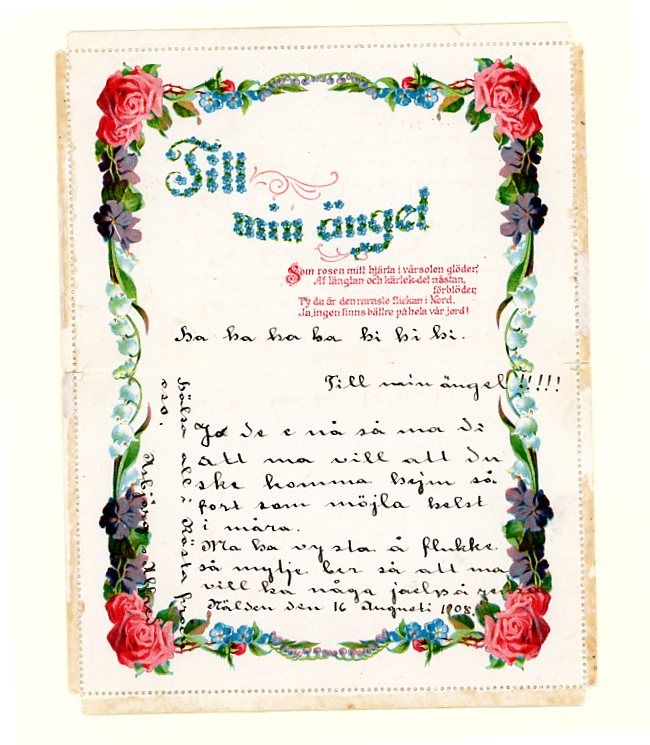 Till
min ängel
Som rosen mitt hjärta i vårsolen glöder:
Af längtan och kärlek det nästan,
förblöder,
Ty du är den raraste flickan i Nord,
Ja, ingen finns bättre på hela vår jord!
ha ha ha ha hi hi hi.
Till min ängel !!!!!
Ja de e nå så ma di
att ma vill att du
ske komma hejm så
fort som möjla helst
i måra.
Ma ha vysta å flukke
så mytje ber så att ma
vill ha någa jaelpå
Nälden den 16 Augusti 1908.
Hälsa all i Kösta från
oss.